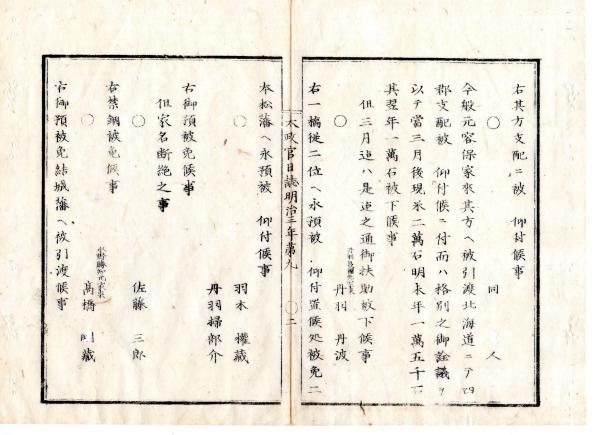 右其方支配ニ被　仰付候事
○　同　人
今般元容保家來其方ヘ被引渡北海道ニテ四
郡支配被　仰付候ニ付而ハ格別之御詮議ヲ
以テ當三月後現米二萬石明未年一萬五千石
其翌年一萬石被下候事
但三月迠ハ是迠之通御扶助被下候事
○
丹羽　丹波
右一橋從二位ヘ永預被　仰付置候処被免二
太政官日誌明治三年第九　○　二
本松藩ヘ永預被　仰付候事
○　羽木　權藏
丹羽婦部介
右御預被免候事
但家名断絶之事
○　佐藤　三郎
右禁錮被免候事
○　水野勝知元家来
高橋　藏
右御預被免結城藩ヘ被引渡候事